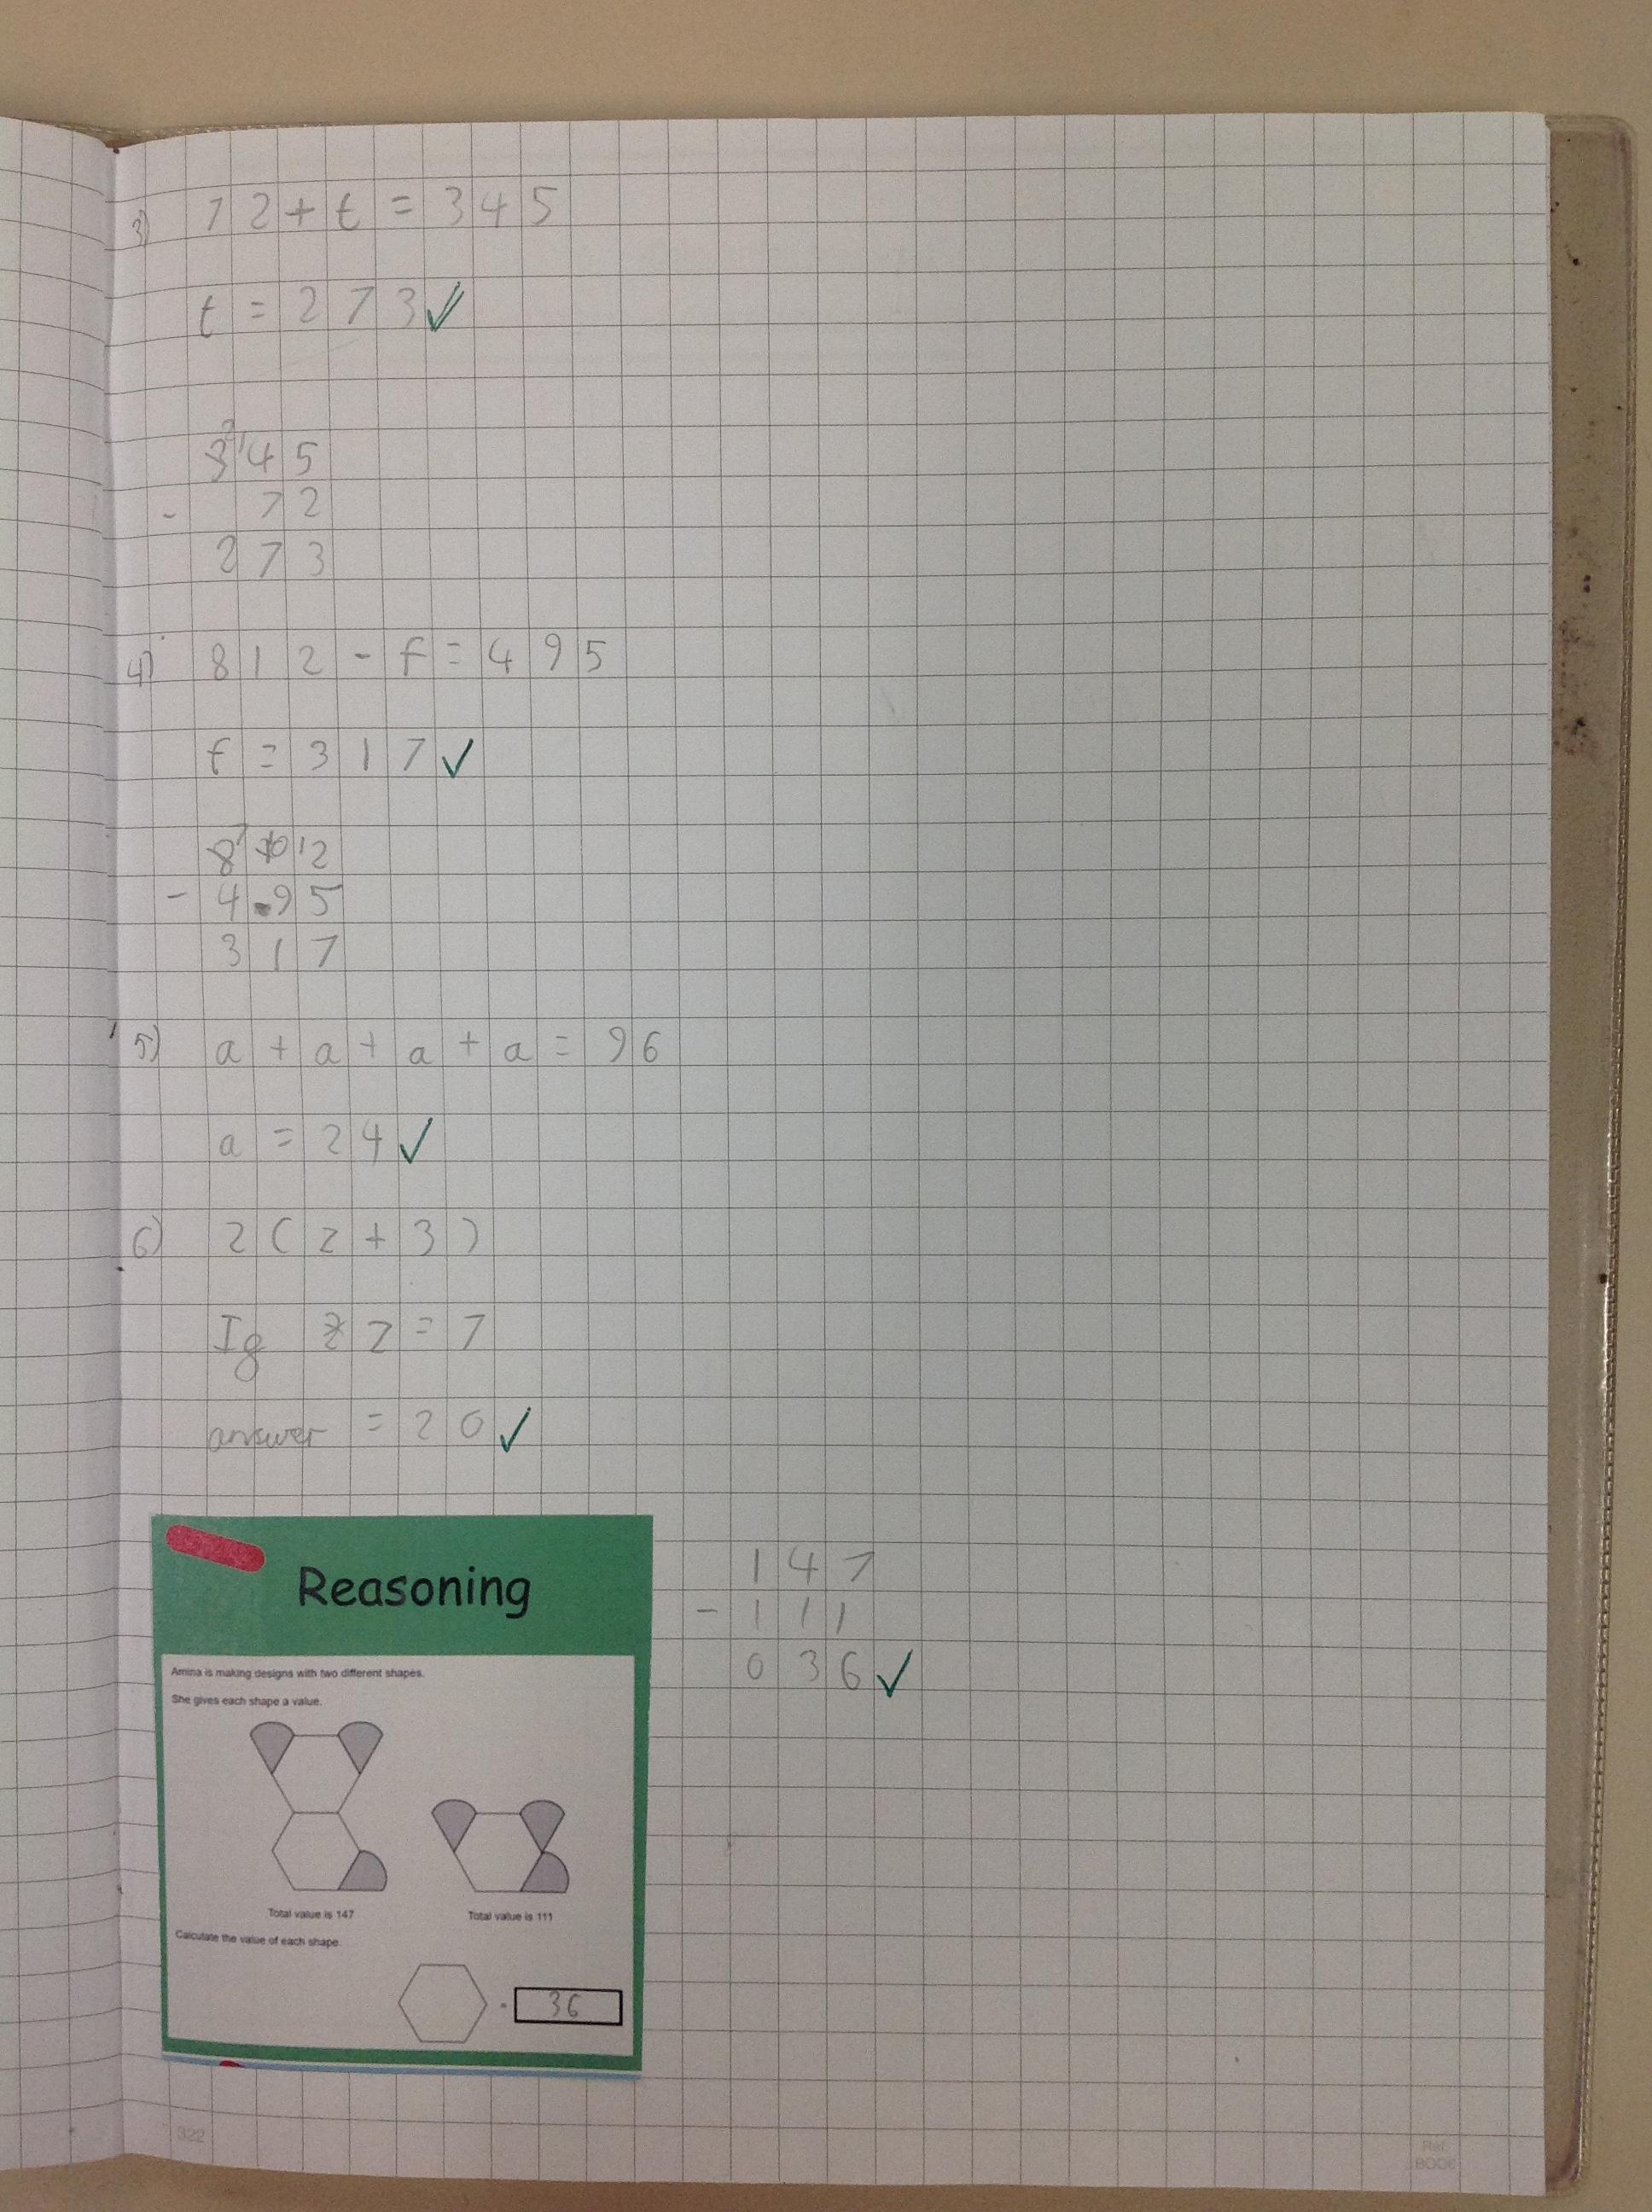 3) 72 + t = 345
t = 273
3 2 1 4 5
- 7 2
2 7 3
4) 812 - f = 495
f = 317
8 7 10 12
- 4 9 5
3 1 7
5) a + a + a + a = 96
a = 24
6) 2(z + 3)
If z z = 7
answer = 20
Reasoning
Amina is making designs with two different shapes.
She gives each shape a value.
Total value is 147
Total value is 111
Calculate the value of each shape.
36
1 4 7
- 1 1 1
0 3 6
322